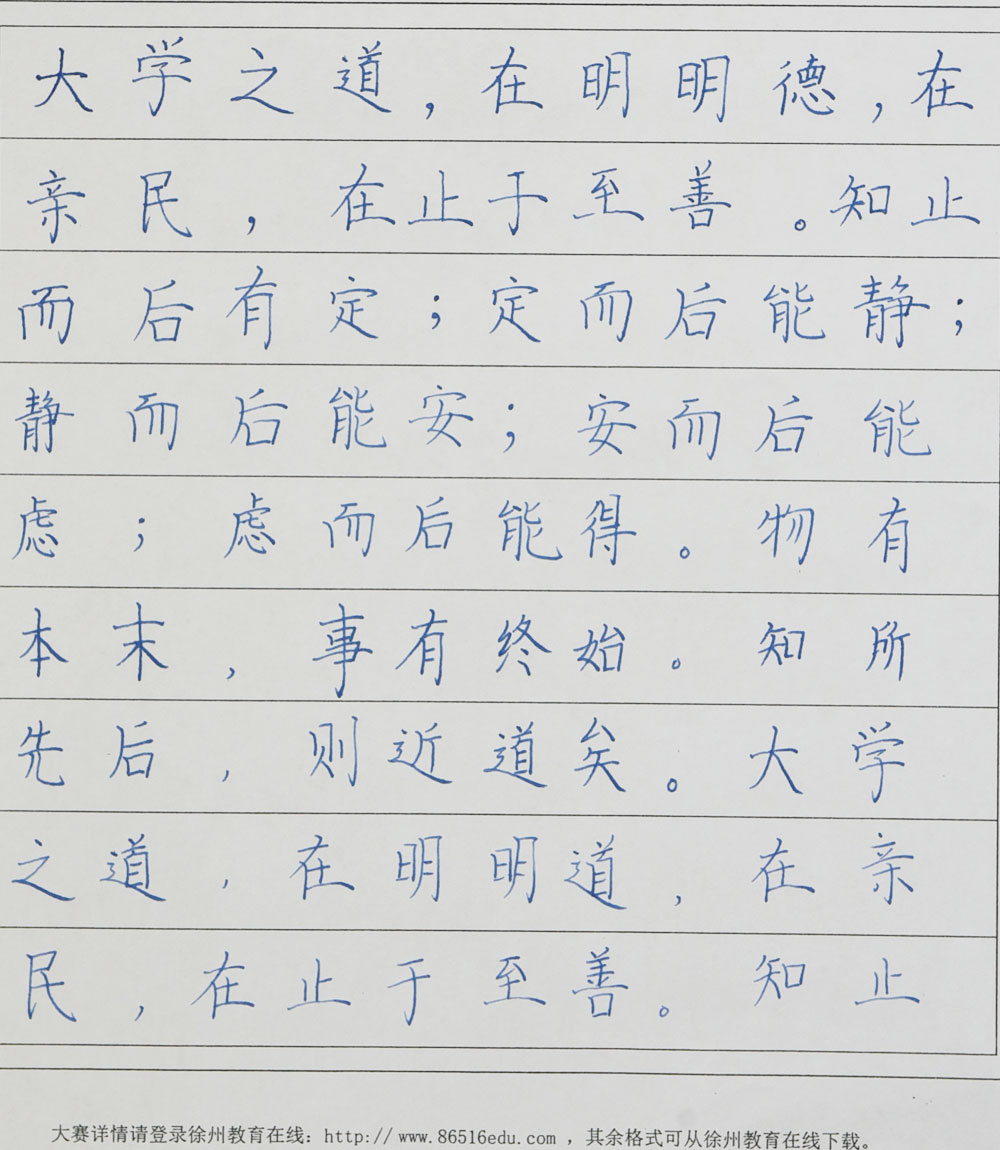 大学之道，在明明德，在
亲民，在止于至善。知止
而后有定；定而后能静；
静而后能安；安而后能
虑；虑而后能得。物有
本末，事有终始。知所
先后，则近道矣。大学
之道，在明明道，在亲
民，在止于至善。知止
大赛详情请登录徐州教育在线：http://www.86516edu.com，其余格式可从徐州教育在线下载。